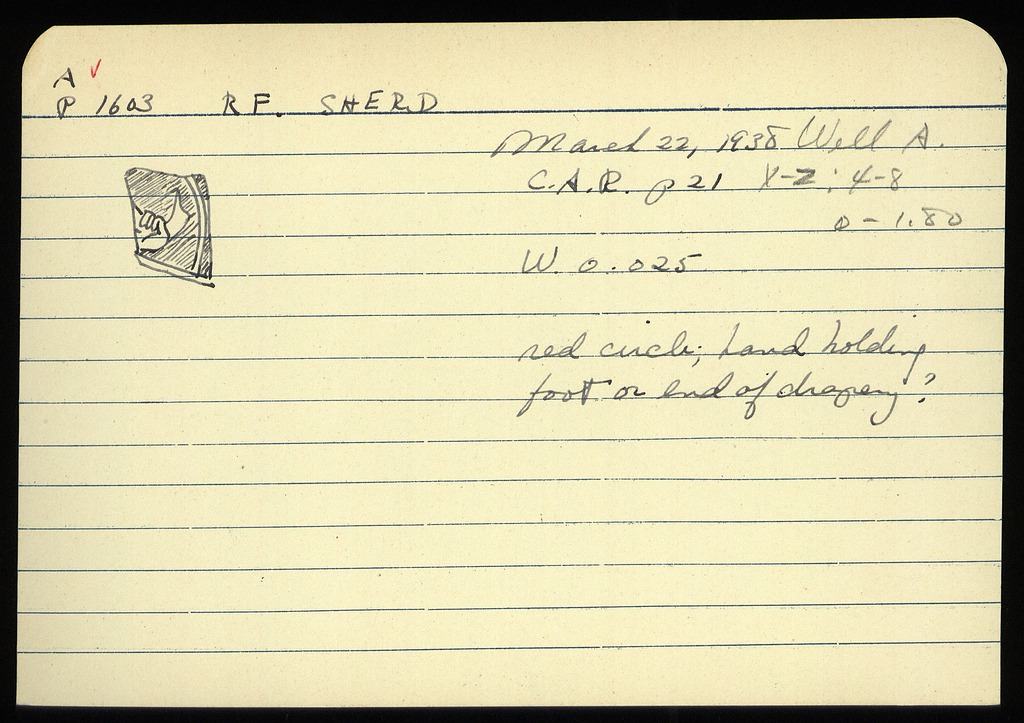 A ✓
P 1603 R F. SHERD
March 22, 1938 Well A.
C.A.R. p 21 X-Z : 4-8
0 - 1.80
W. 0.025
red circle; hand holding
foot or end of drapery?